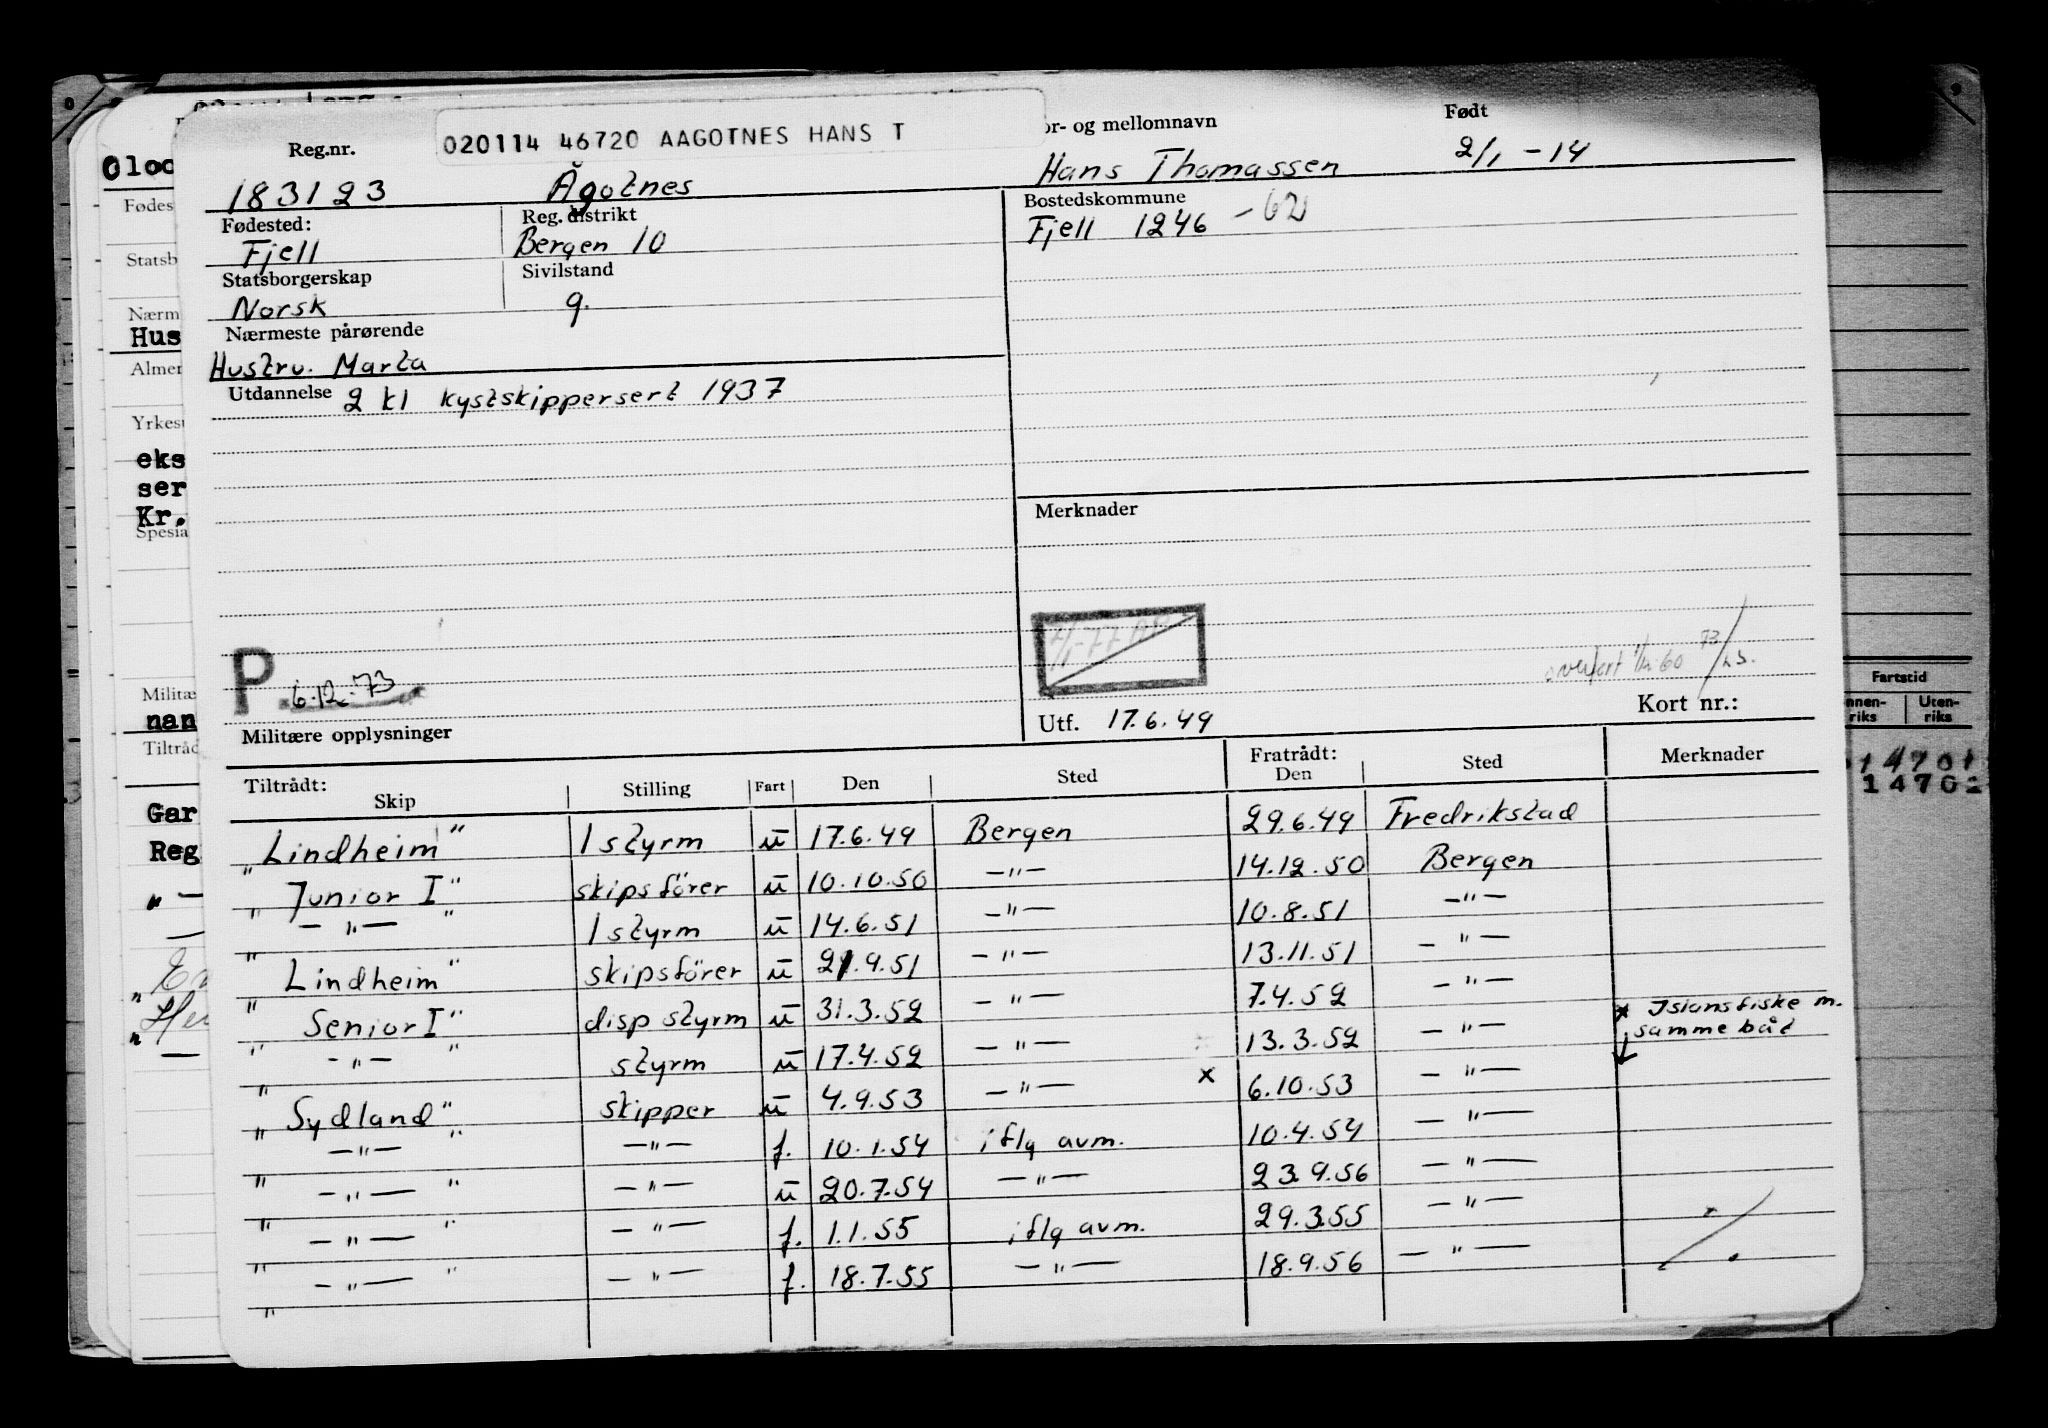 020114 46720 AAGOTNES HANS T
Reg.nr. or- og mellomnavn Født
183123 Ågotnes Hans Thomassen 2/1 -14
Fødested: Reg. distrikt Bostedskommune
Fjell Bergen 10 Fjell 1246 -62
Statsborgerskap Sivilstand
Norsk g.
Nærmeste pårørende
Hustru. Marta
Utdannelse 2 kl kystskippersert 1937
Merknader
P. 6.12.73
Utf. 17.6.49 Kort nr.:
Militære opplysninger
Tiltrådt: Fratrådt:
Skip Stilling Fart Den Sted Den Sted Merknader
"Lindheim" 1 styrm u 17.6.49 Bergen 29.6.49 Fredrikstad
"Junior I" skipsförer u 10.10.50 —"— 14.12.50 Bergen
"—"—" 1 styrm u 14.6.51 —"— 10.8.51 —"—
"Lindheim" skipsförer u 21.9.51 —"— 13.11.51 —"—
"Senior I" disp styrm u 31.3.52 —"— 7.4.52 —"— x Islansfiske m.
samme båt
"—"—" styrm u 17.4.52 —"— 13.3.52 —"—
"Sydland" skipper u 4.9.53 —"— x 6.10.53 —"—
"—"—" —"— f. 10.1.54 iflg avm. 10.4.54 —"—
"—"—" —"— u 20.7.54 —"— 23.9.56 —"—
"—"—" —"— f. 1.1.55 iflg avm. 29.3.55 —"—
"—"—" —"— f. 18.7.55 —"— 18.9.56 —"—
"
Oloc
Fødes
Statsb
Nærm
Hus
Almer
Yrkesu
eks
ser
Kr.
Spesia
Militæ
nan
Tiltråd
Gar
Reg
Fartstid
nnen-
riks
Uten-
riks
1470